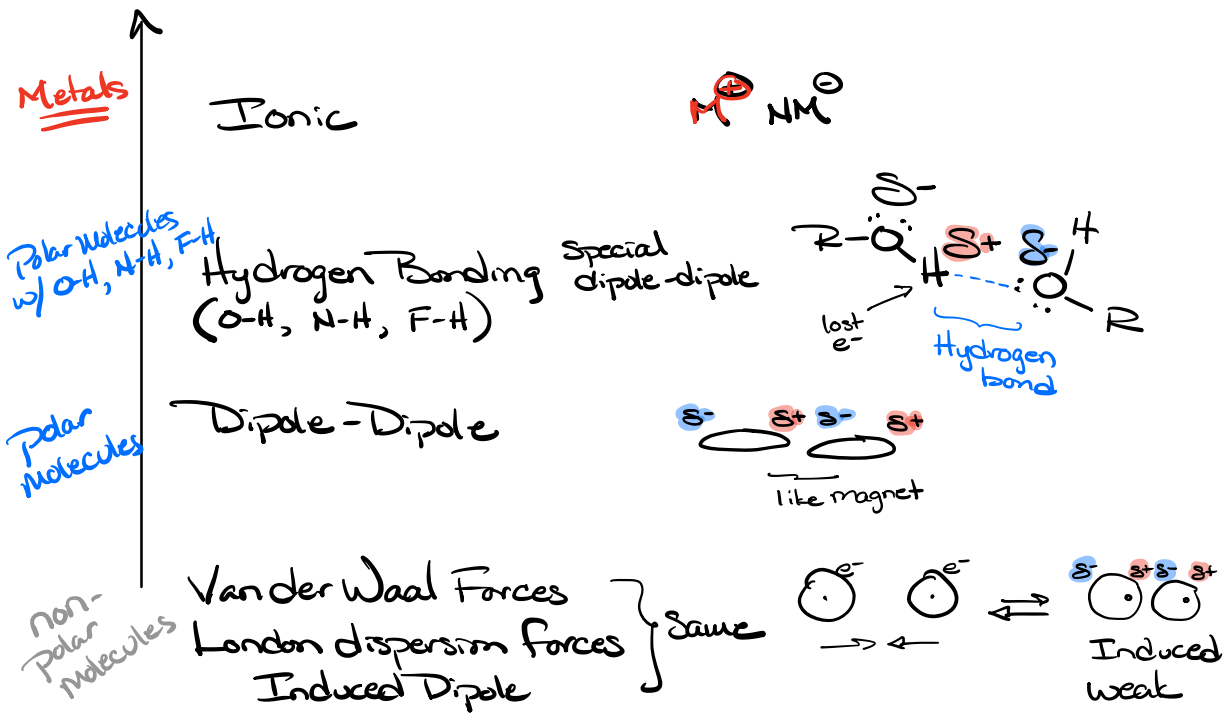 Metals
Ionic
M⊕ NM⊖
Polar Molecules
w/ O-H, N-H, F-H
Hydrogen Bonding
(O-H, N-H, F-H)
Special
dipole-dipole
δ-
R-O
H
δ+
δ-
H
:O
R
lost
e-
Hydrogen
bond
Polar
molecules
Dipole-Dipole
δ- δ+ δ- δ+
like magnet
non-
polar
molecules
Van der Waal Forces
London dispersion forces
Induced Dipole
Same
e- e-
⇌
δ- δ+ δ- δ+
Induced
weak